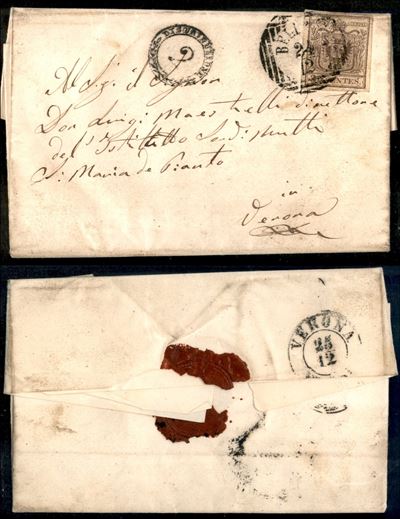 DISTRIBUZIONE
2
BE
24
CENTES.
Al Sig. il Signor
Don Luigi Maestrelli direttore
dell' Istituto Sordi muti
S. Maria de Pianto
in
Verona
VERONA
25
12